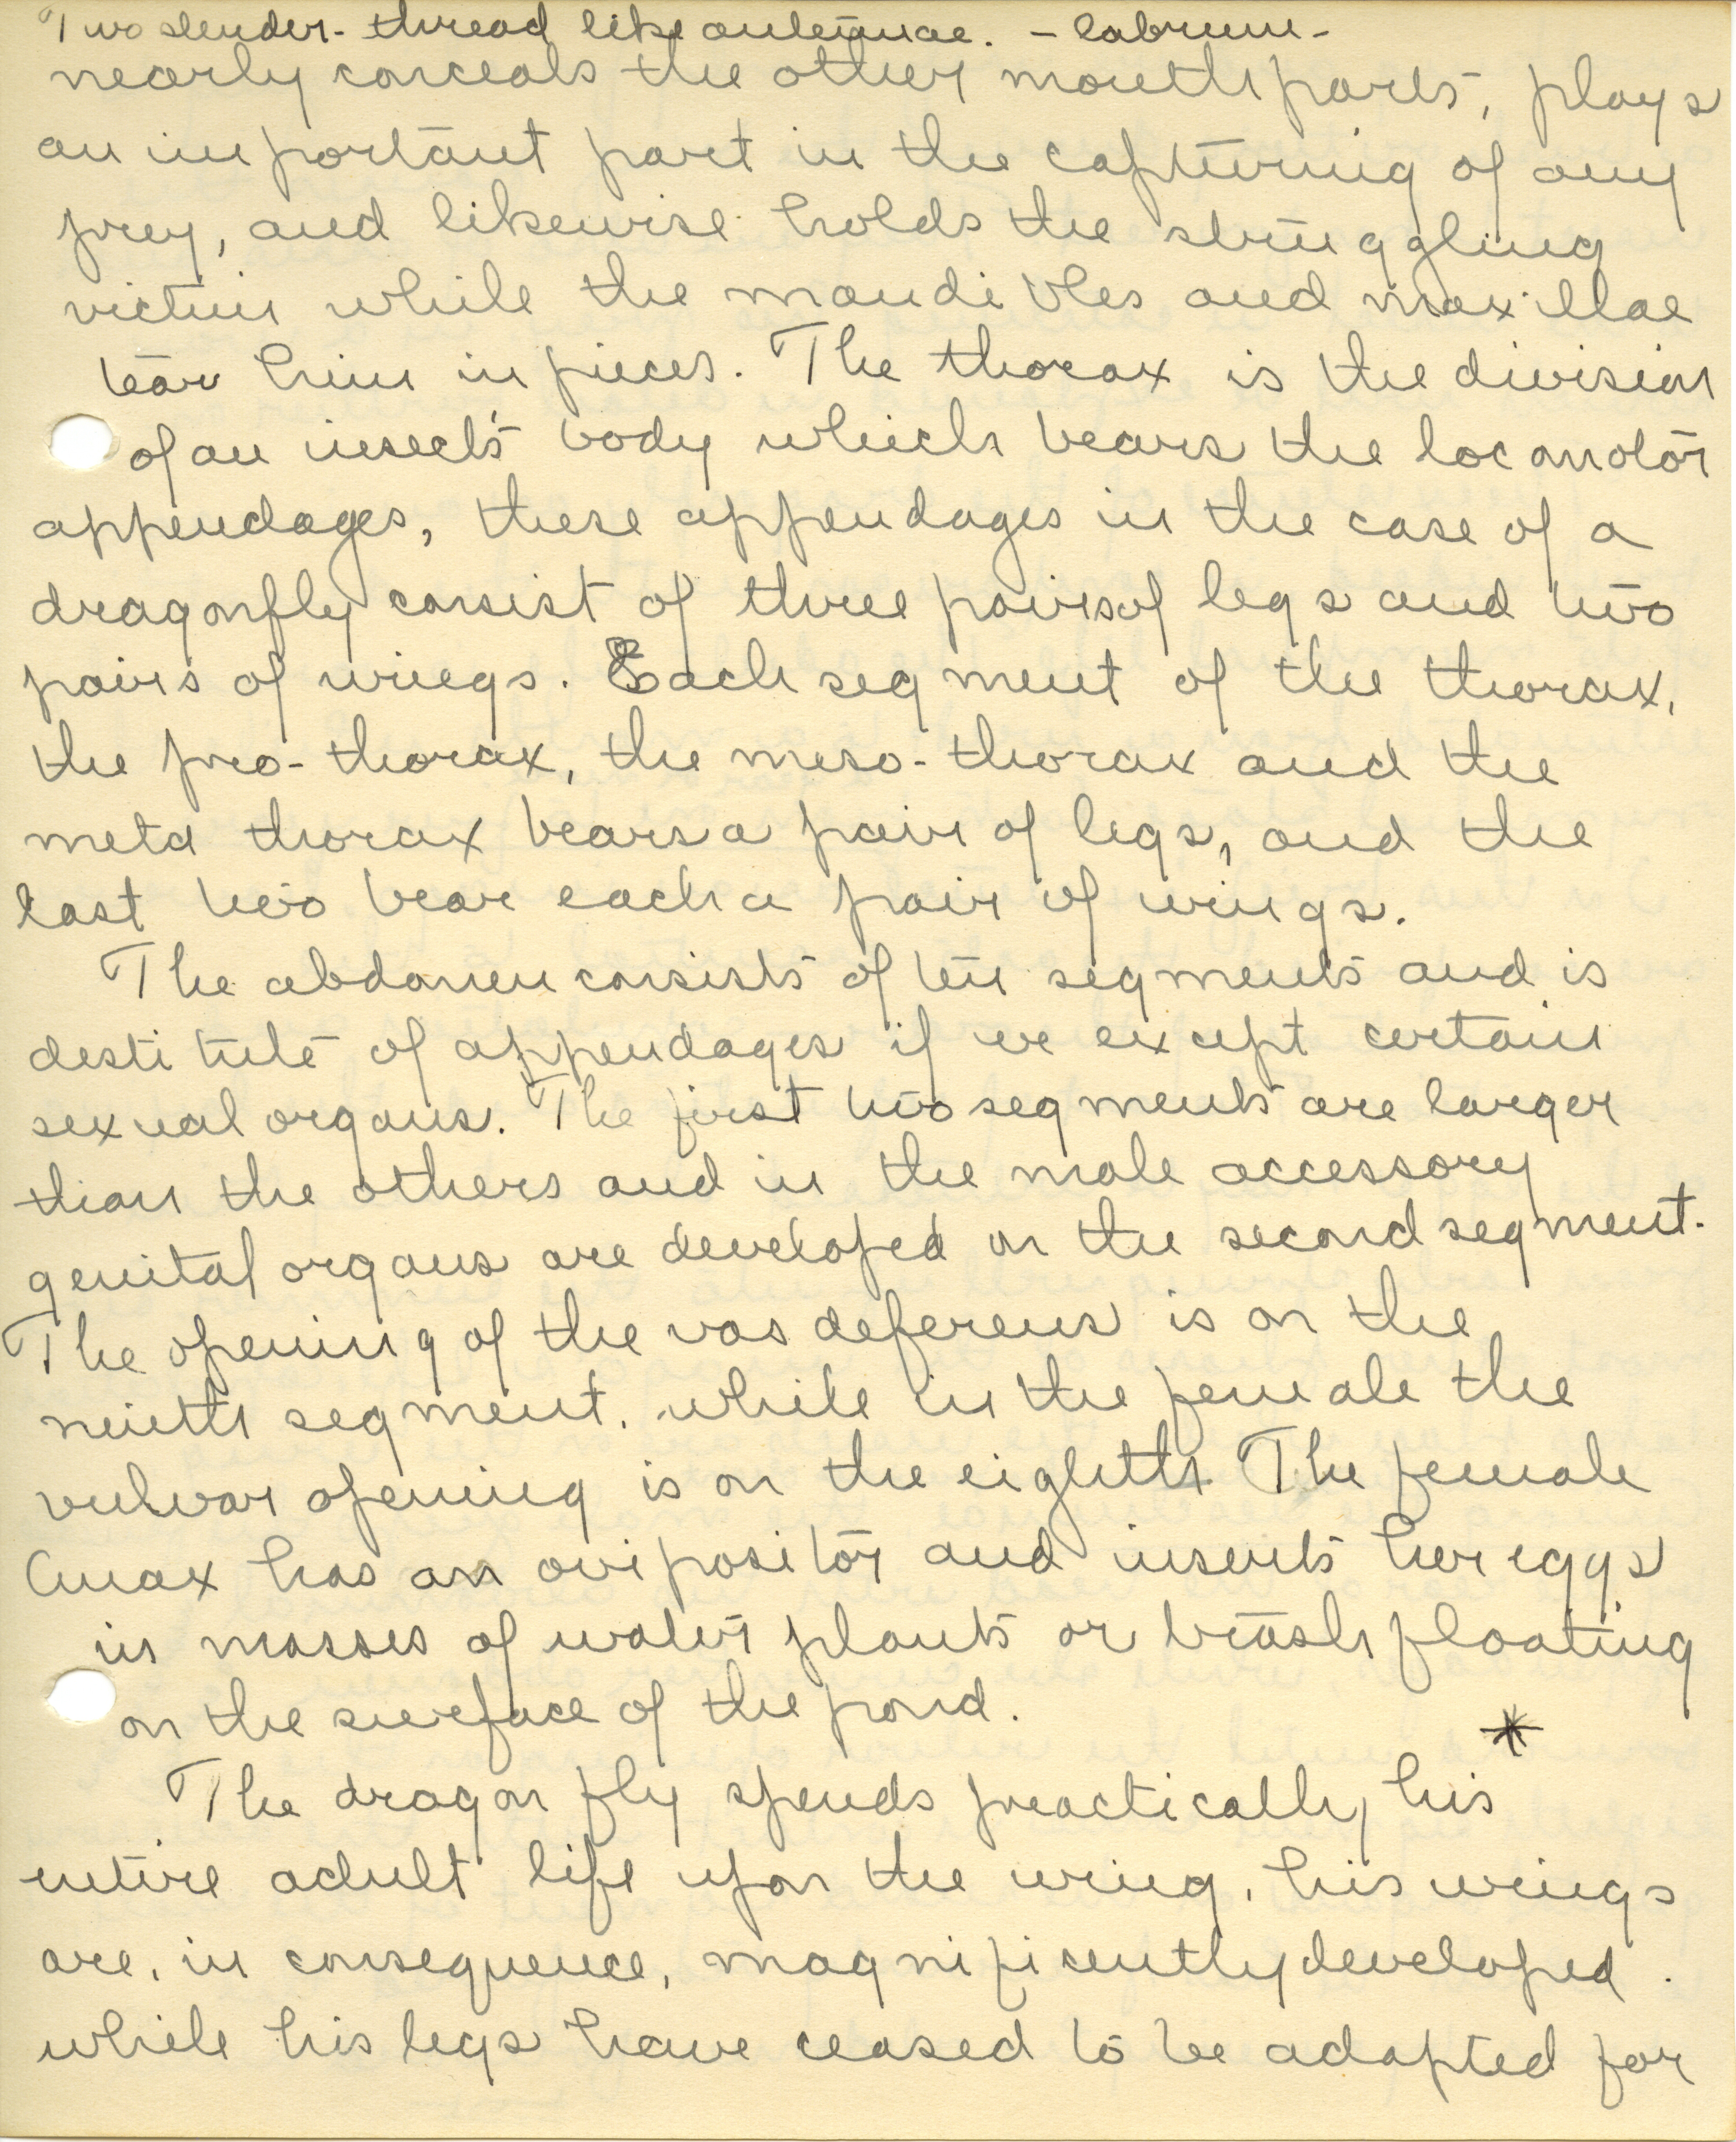 Two slender- thread like antennae. - labrum -
nearly conceals the other mouth parts, plays
an important part in the capturing of any
prey, and likewise holds the struggling
victim while the mandibles and maxillae
tear him in pieces. The thorax is the division
of an insect's body which bears the locomotor
appendages, these appendages in the case of a
dragonfly consist of three pairs of legs and two
pairs of wings. Each segment of the thorax,
the pro-thorax, the meso-thorax and the
meta thorax bears a pair of legs, and the
last two bear each a pair of wings.
The abdomen consists of ten segments and is
destitute of appendages if we except certain
sexual organs. The first two segments are larger
than the others and in the male accessory
genital organs are developed on the second segment.
The opening of the vas deferens is on the
ninth segment. while in the female the
vulvar opening is on the eighth. The female
Anax has an ovipositor and inserts her eggs
in masses of water plants or trash floating
on the surface of the pond.
*
The dragon fly spends practically his
entire adult life upon the wing, his wings
are, in consequence, magnificently developed.
while his legs have ceased to be adapted for